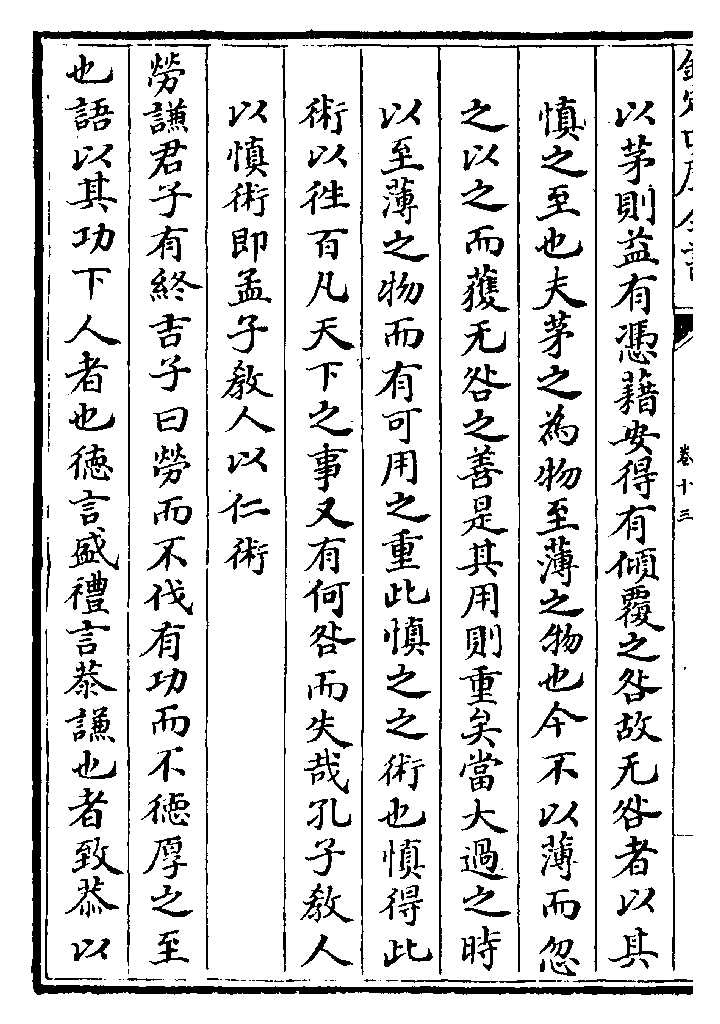 欽定四庫全書
卷十三
以茅則益有憑藉安得有傾覆之咎故无咎者以其
慎之至也夫茅之為物至薄之物也今不以薄而忽
之以之而獲无咎之善是其用則重矣當大過之時
以至薄之物而有可用之重此慎之之術也慎得此
術以徃百凡天下之事又有何咎而失哉孔子教人
以慎術即孟子教人以仁術
勞謙君子有終吉子曰勞而不伐有功而不徳厚之至
也語以其功下人者也徳言盛禮言恭謙也者致恭以